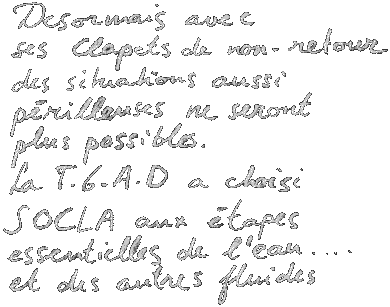 Desormais avec
ses Clapets de non-retour
des situations aussi
périlleuses ne seront
plus possibles.
La T.G.A.D a choisi
SOCLA aux étapes
essentielles de l'eau....
et des autres fluides